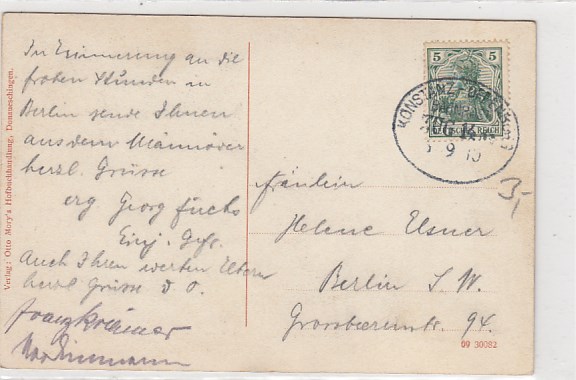 In Erinnerung an die
frohen Stunden in
Berlin sende Ihnen
aus dem Manöver
herzl. Grüsse
erg Georg Fuchs
Einj. Gefr.
Auch Ihren werten Eltern
herzl Grüsse D. O.
Franz Krämer
Verlag: Otto Mory's Hofbuchhandlung, Donaueschingen.
5 5
DEUTSCHES REICH
KONSTANZ-OFFENBURG
ZUG
9 10
3,-
Fräulein
Helene Elsner
Berlin S.W.
Grossbeerenstr. 94.
09 30082